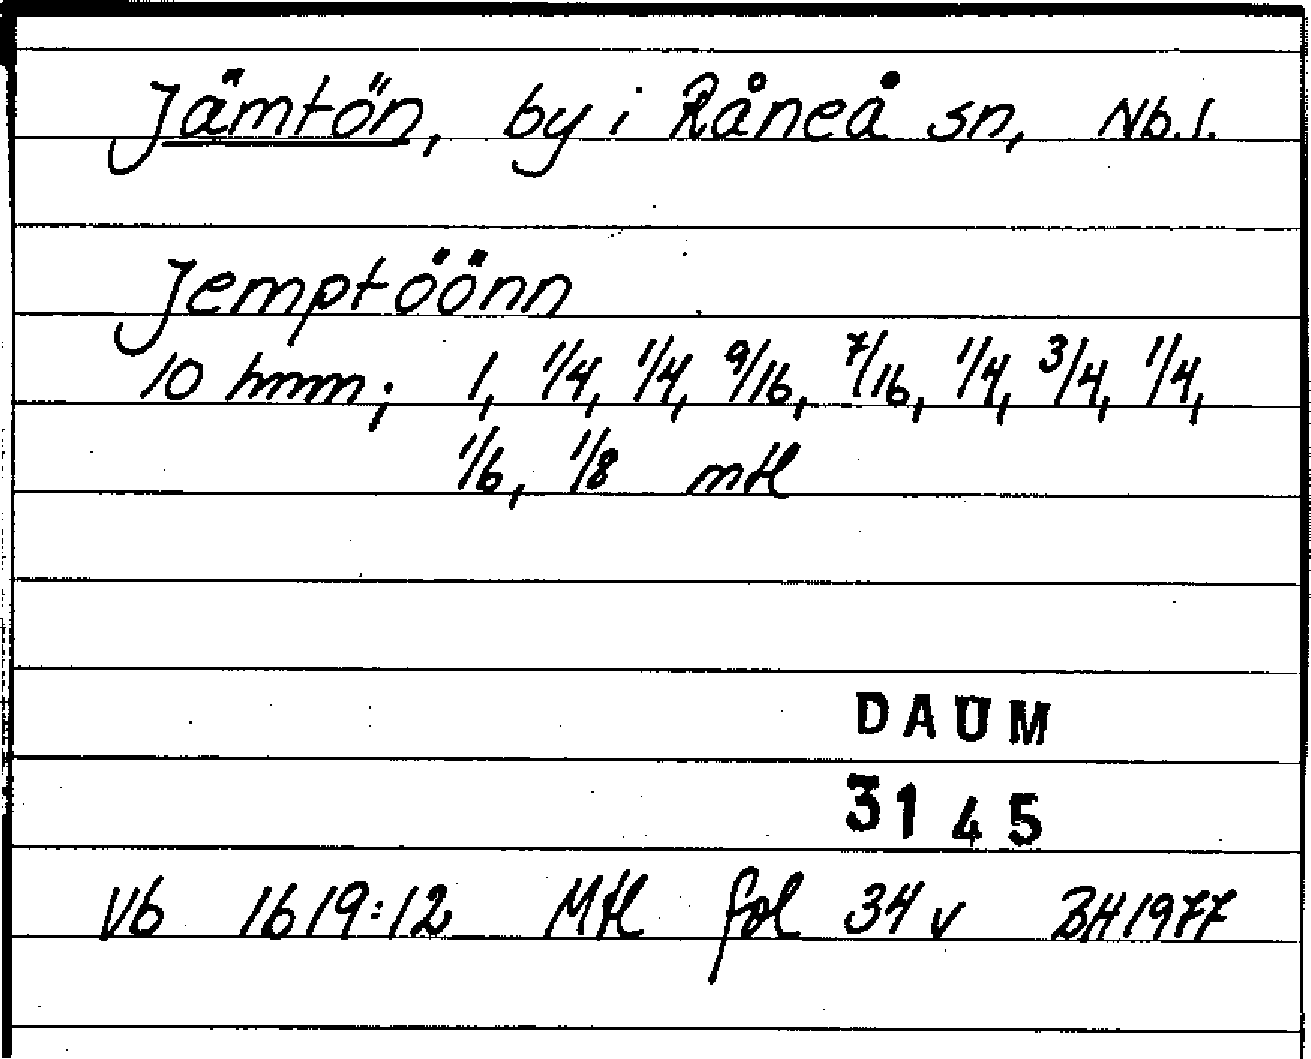 Jämtön, by i Råneå sn, Nb.l.
Jemptöönn
10 hmm; 1, 1/4, 1/4, 9/16, 7/16, 1/4, 3/4, 1/4,
1/6, 1/8 mtl
DAUM
3145
Vb 1619:12 Mtl fol 34 v BH1977